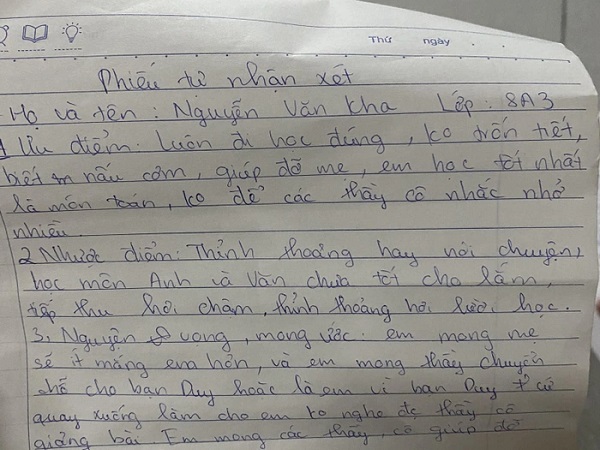 Thứ ngày
Phiếu tự nhận xét
Họ và tên : Nguyễn Văn Kha Lớp : 8A3
1 Ưu điểm: Luôn đi học đúng, ko trốn tiết,
biết nấu cơm, giúp đỡ mẹ, em học tốt nhất
là môn toán, ko để các thầy cô nhắc nhở
nhiều.
2 Nhược điểm: Thỉnh thoảng hay nói chuyện,
học môn Anh và Văn chưa tốt cho lắm,
tiếp thu hơi chậm, thỉnh thoảng hơi lười học.
3, Nguyện vọng, mong ước: em mong mẹ
sẽ ít mắng em hơn, và em mong thầy chuyển
chỗ cho bạn Duy hoặc là em vì bạn Duy cứ
quay xuống làm cho em ko nghe đc thầy cô
giảng bài. Em mong các thầy, cô giúp đỡ